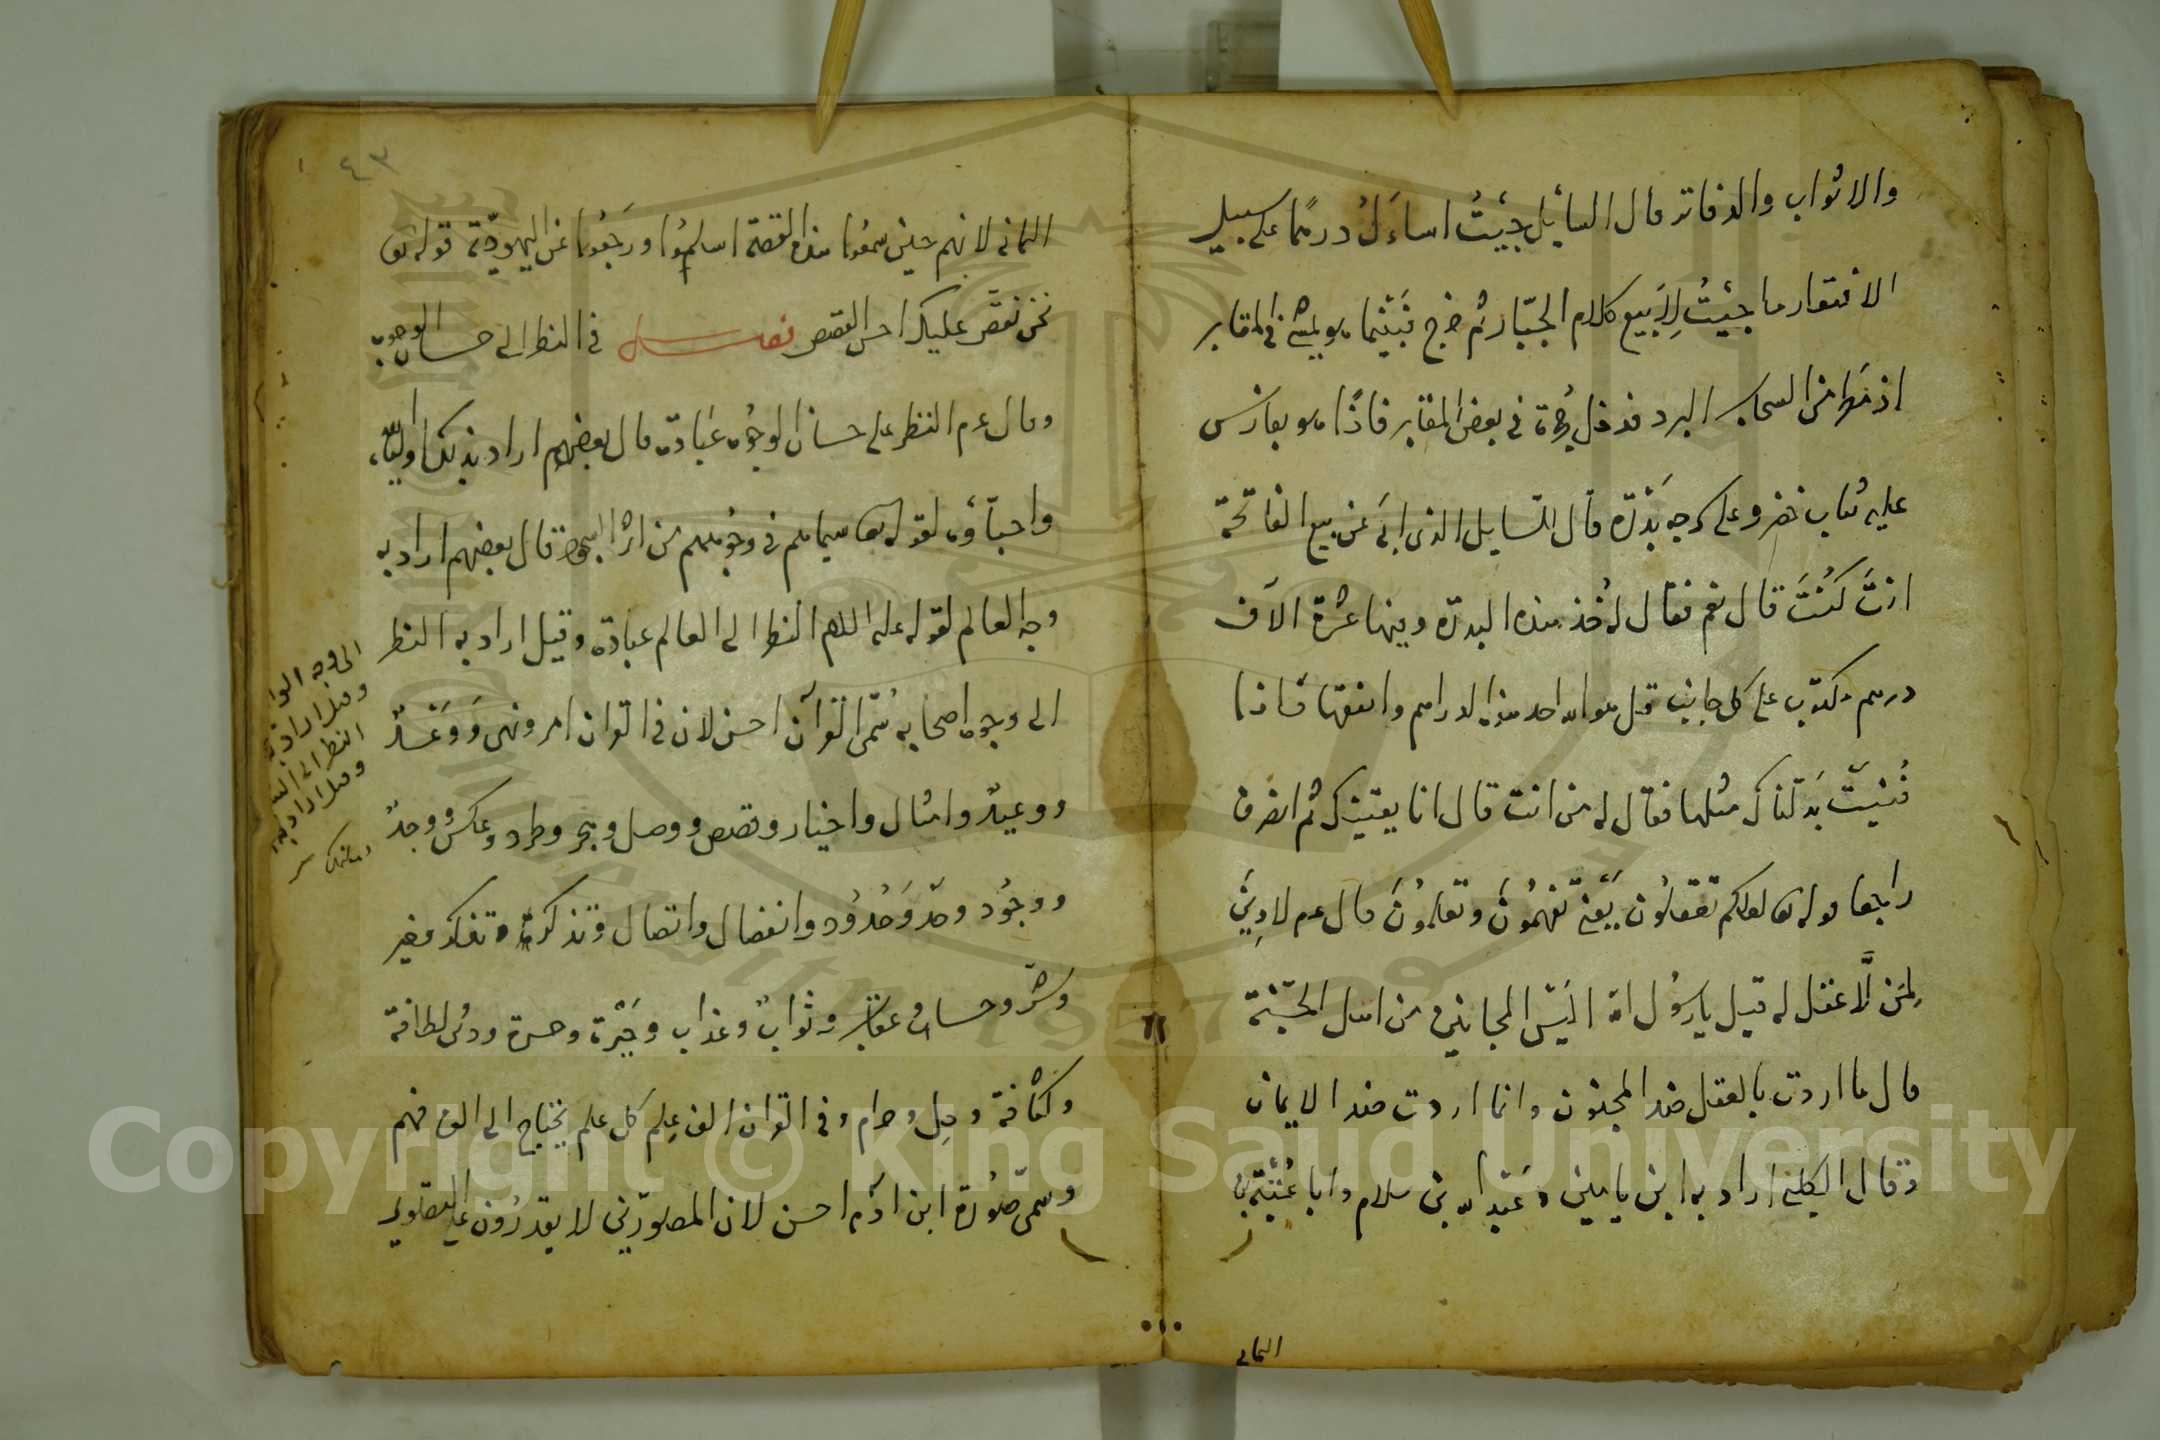 والاثواب والدفاتر قال السايل جيئت اسأل درهما على سبيل
الافتقار ما جيئت لابيع كلام الجبار ثم خرج فبينما هو يمشي في المقابر
اذ مطر من السحاب البرد فدخل حجرة في بعض المقابر فاذا هو بفارس
عليه ثياب خضر وعلى كرجه بدرة قال للسايل الذي ابى عن بيع الفاتحة
انت كنت قال نعم فقال له خذ هذه البدرة وفيها عشرة الاف
درهم مكتوب على كل جانب قل هو الله احد هذه الدراهم وانفقها فاذا
فنيت بدلناك مثلها فقال له من انت قال انا يقينك ثم انصرف
راجعا قوله تعا لعلكم تعقلون يعني تفهمون وتعلمون قال عم لا دين
لمن لا عقل له قيل يا رسول الله اليس المجانين من اهل الجنة
قال ما اردت بالعقل ضد المجنون وانما اردت ضد الايمان
وقال الكلبي اراد به ابن يامين وعبد الله بن سلام وابا
اليماني
٤٣
اليماني لانهم حين سمعوا هذه القصة اسلموا ورجعوا عن اليهودية قوله تعا
نحن نقص عليك احسن القصص فصل في النظر الى حسان الوجوه
وقال عم النظر على حسان الوجوه عبادة قال بعضهم اراد بذلك اولياء
واحباؤه لقوله تعا سيماهم في وجوههم من اثر السجود قال بعضهم اراد به
وجه العالم لقوله عليه السلام النظر الى العالم عبادة وقيل اراد به النظر
الى وجوه اصحابه سمى القرآن احسن لان في القران امر ونهى ووعد
ووعيد وامثال واخبار وقصص ووصل وهجر وطرد وعكس ووجد
ووجود وحد وحدود وانفصال واتصال وتذكرة وتفكر وخير
وشر وحساب وعقاب وثواب وعذاب وحيرة وحسرة ودنى لطافة
وكثافة وحل وحرام وفي القران الف علم كل علم يحتاج الى الف فهم
وسمى صورة ابن آدم احسن لان المصورين لا يقدرون على التصوير
الى وجه
وقيل اراد به
النظر الى
وقيل اراد به
Copyright © King Saud University
1957